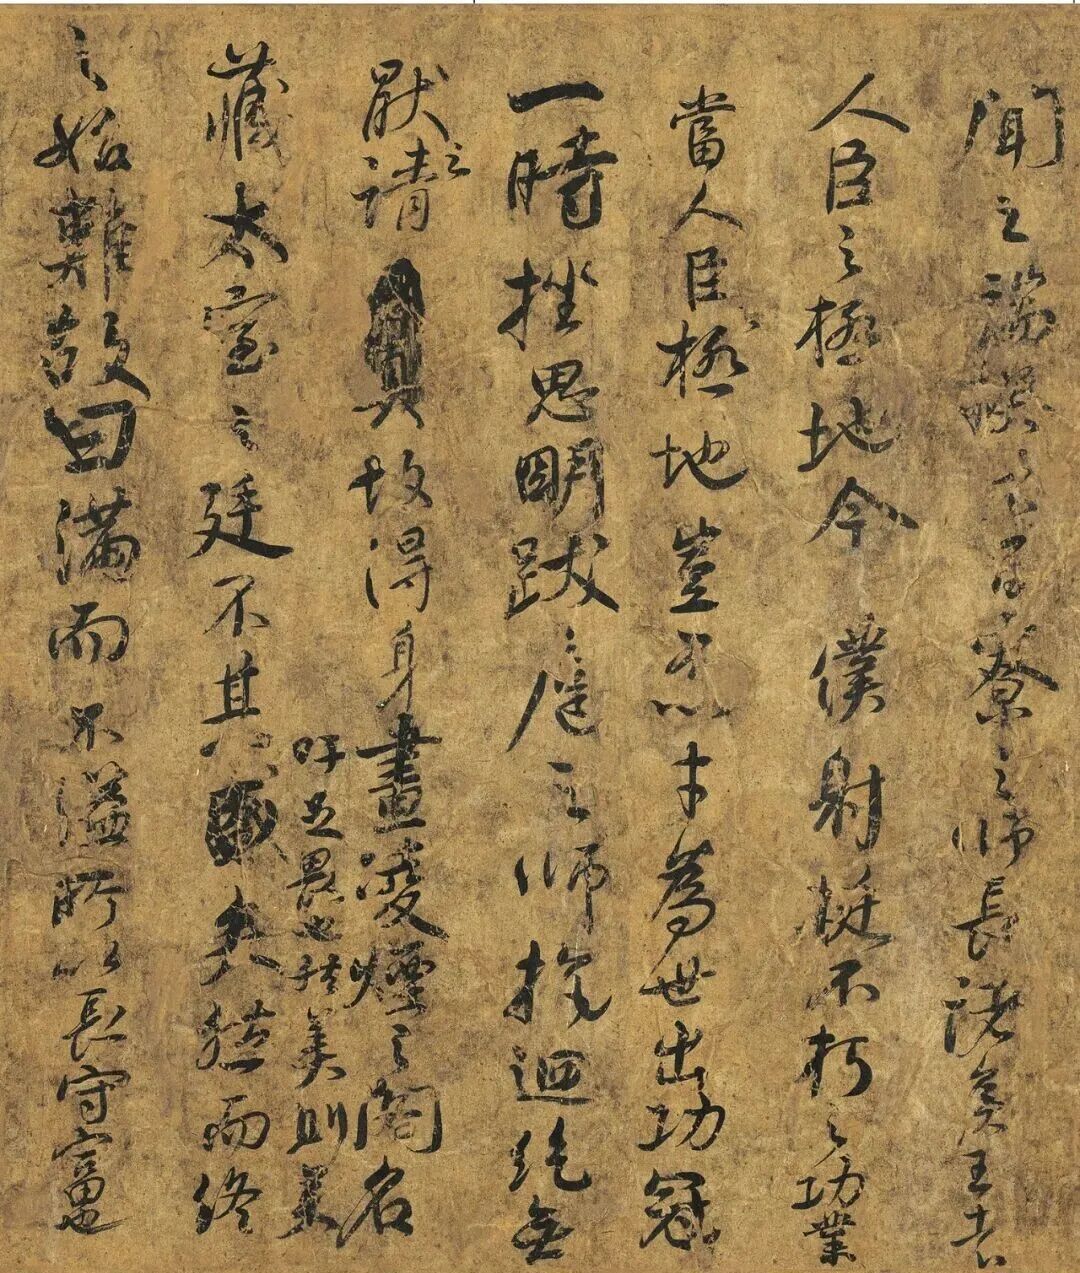 聞之端揆者百寮之師長諸侯王者
人臣之極地今僕射挺不朽之功業
當人臣極地豈不以才為世出功冠
一時挫思明跋扈之師抗迴紇無
厭之請故得身畫淩煙之閣名
吁足畏也然美則美
藏太室之廷不其矣然而終
之始難故曰滿而不溢所以長守富也